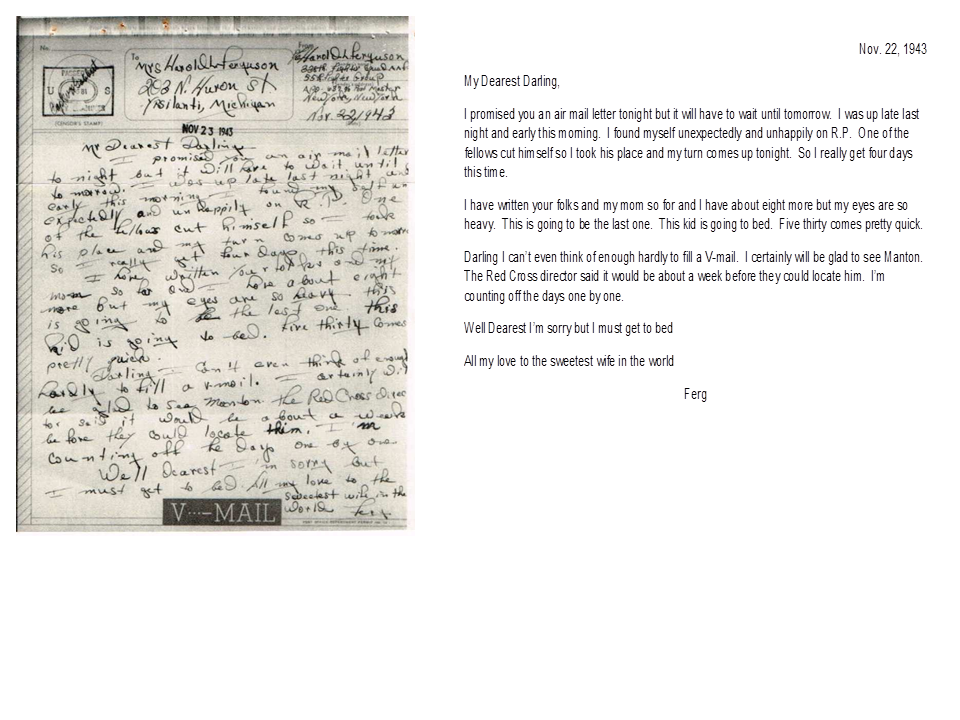 No.
To
Mrs Harold L Ferguson
203 N. Huron St
Ypsilanti, Michigan
From
Harold L Ferguson
55th Fighter Group
New York, New York
Nov. 22/1943
U S
(CENSOR'S STAMP)
NOV 23 1943
My Dearest Darling
I promised you an air mail letter
to night but it will have to wait until
to morrow. I was up late last night and
early this morning. I found my self un
expectedly and unhappily on R.P. One
of the fellows cut himself so I took
his place and my turn comes up tomorr
So I really get four days this time.
I have written your folks and my
mom so far and I have about eight
more but my eyes are so heavy this
is going to be the last one. This
kid is going to bed. Five thirty comes
pretty quick.
Darling I can't even think of enough
hardly to fill a v-mail. I certainly will
be glad to see Manton the Red Cross direc
tor said it would be about a week
before they could locate them. I'm
counting off the days one by one
Well Dearest I'm sorry but
I must get to bed All my love to the
sweetest wife in the
world Ferg
V···—MAIL
Nov. 22, 1943
My Dearest Darling,
I promised you an air mail letter tonight but it will have to wait until tomorrow. I was up late last
night and early this morning. I found myself unexpectedly and unhappily on R.P. One of the
fellows cut himself so I took his place and my turn comes up tonight. So I really get four days
this time.
I have written your folks and my mom so for and I have about eight more but my eyes are so
heavy. This is going to be the last one. This kid is going to bed. Five thirty comes pretty quick.
Darling I can't even think of enough hardly to fill a V-mail. I certainly will be glad to see Manton.
The Red Cross director said it would be about a week before they could locate him. I'm
counting off the days one by one.
Well Dearest I'm sorry but I must get to bed
All my love to the sweetest wife in the world
Ferg